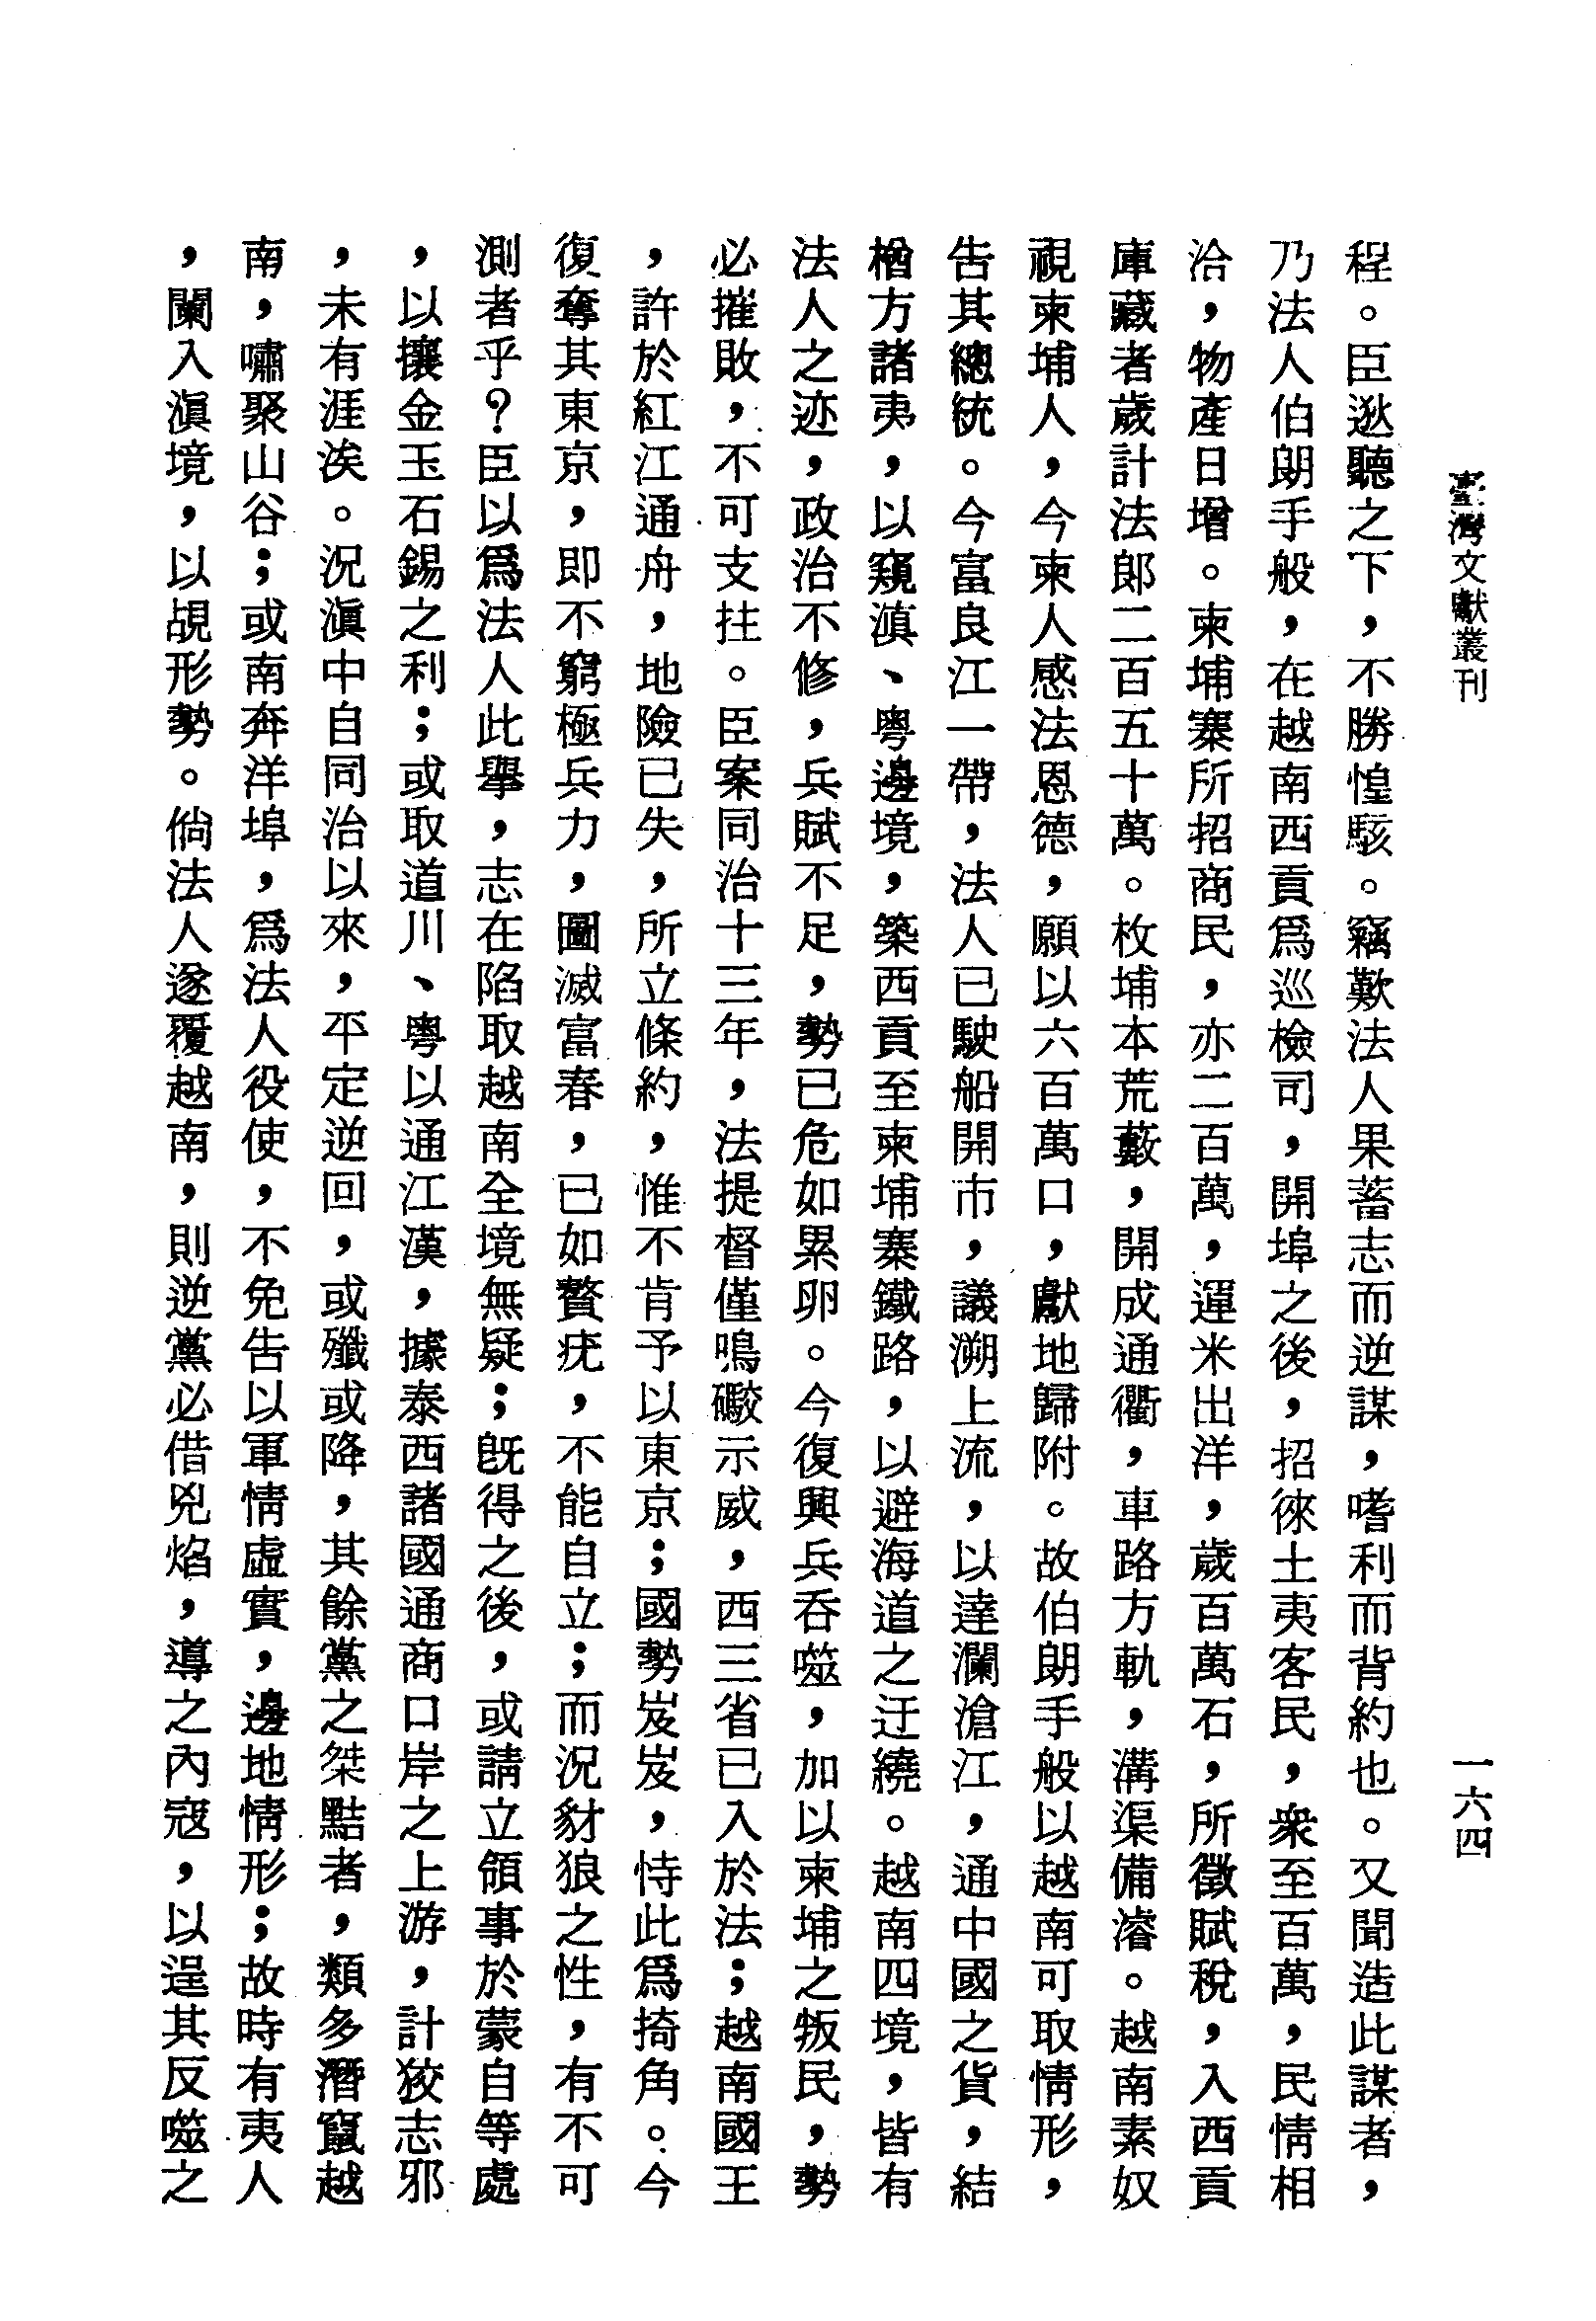 臺灣文獻叢刊
一六四
程。臣逖聽之下，不勝惶駭。竊歎法人果蓄志而逆謀，嗜利而背約也。又聞造此謀者，
乃法人伯朗手般，在越南西貢爲巡檢司，開埠之後，招徠土夷客民，衆至百萬，民情相
洽，物產日增。柬埔寨所招商民，亦二百萬，運米出洋，歲百萬石，所徵賦稅，入西貢
庫藏者歲計法郎二百五十萬。枚埔本荒藪，開成通衢，車路方軌，溝渠備濬。越南素奴
視柬埔人，今柬人感法恩德，願以六百萬口，獻地歸附。故伯朗手般以越南可取情形，
告其總統。今富良江一帶，法人已駛船開市，議溯上流，以達瀾滄江，通中國之貨，結
檜方諸夷，以窺滇、粤邊境，築西貢至柬埔寨鐵路，以避海道之迂繞。越南四境，皆有
法人之迹，政治不修，兵賦不足，勢已危如累卵。今復興兵吞噬，加以柬埔之叛民，勢
必摧敗，不可支拄。臣案同治十三年，法提督僅鳴礮示威，西三省已入於法；越南國王
，許於紅江通舟，地險已失，所立條約，惟不肯予以東京；國勢岌岌，恃此爲掎角。今
復奪其東京，即不窮極兵力，圖滅富春，已如贅疣，不能自立；而況豺狼之性，有不可
測者乎？臣以爲法人此舉，志在陷取越南全境無疑；旣得之後，或請立領事於蒙自等處
，以攘金玉石錫之利；或取道川、粤以通江漢，據泰西諸國通商口岸之上游，計狡志邪
，未有涯涘。況滇中自同治以來，平定逆回，或殲或降，其餘黨之桀黠者，類多潛竄越
南，嘯聚山谷；或南奔洋埠，爲法人役使，不免告以軍情虛實，邊地情形；故時有夷人
，闌入滇境，以覘形勢。倘法人遂覆越南，則逆黨必借兇焰，導之內寇，以逞其反噬之